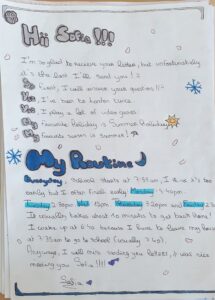 Hii Sofia !!!
I'm so glad to receive your letter, but unfortunately
it's the last I'll send you ! :(
So first, I will answer your question !!
Yes I've been to before twice.
Yes I play a lot of video games.
My favourite holiday is Summer Holidays
My favourite season is summer !
My Routine
Everyday, school starts at 7:55 am, I think it's too
early but I often finish early Monday 3:40pm.
Tuesday 2:30pm 12pm Thursday 3:40pm and 2
It usually takes about 20 minutes to go back home !
I wake up at 6 am because I have to leave my house
at 7:35am to go to school (usually).
Anyways, I will miss sending you letters, it was nice
meeting you Sofia !!!